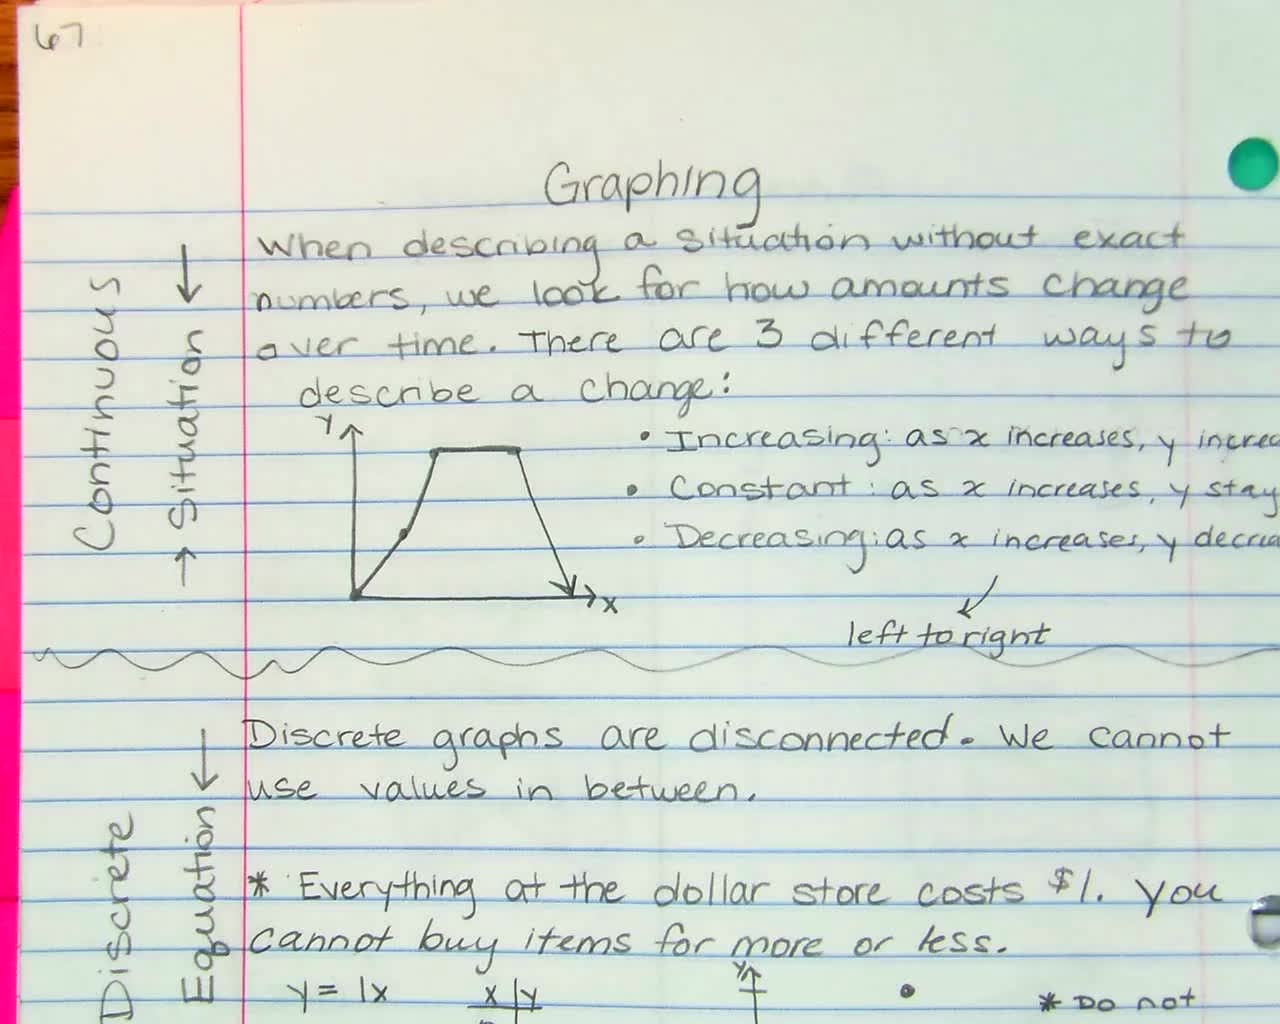 67
Graphing
When describing a situation without exact
numbers, we look for how amounts change
over time. There are 3 different ways to
describe a change:
Continuous
→ Situation →
Y
X
• Increasing: as x increases, y increa
• Constant: as x increases, y stay
• Decreasing: as x increases, y decrea
left to right
Discrete
Equation →
Discrete graphs are disconnected. We cannot
use values in between.
* Everything at the dollar store costs $1. You
cannot buy items for more or less.
y = 1x
x | y
Y
* Do not